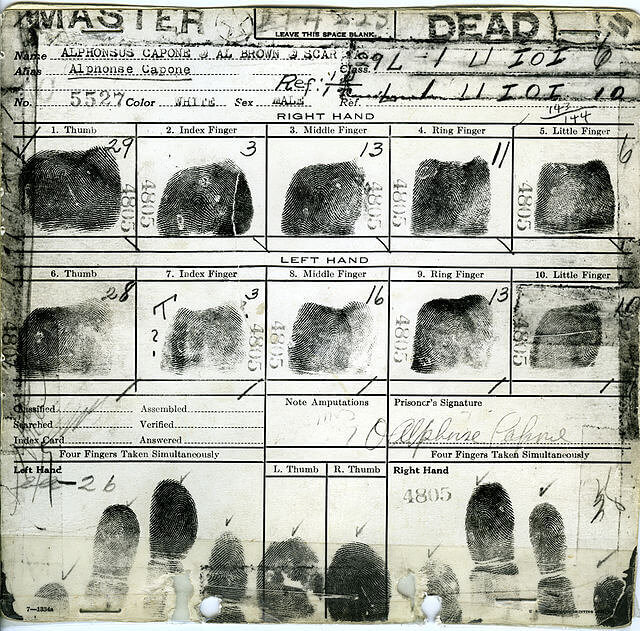 MASTER DEAD
LEAVE THIS SPACE BLANK
Name ALPHONSUS CAPONE AL BROWN SCAR
Alias Alphonse Capone Class.
No. 5527 Color WHITE Sex MALE Ref.
9 L 1 U IOI 6
Ref: 1 1 U IOI 10
143
144
RIGHT HAND
1. Thumb 2. Index Finger 3. Middle Finger 4. Ring Finger 5. Little Finger
29 3 13 11 6
4805 4805 4805 4805 4805
LEFT HAND
6. Thumb 7. Index Finger 8. Middle Finger 9. Ring Finger 10. Little Finger
28 T ? ? 3 16 13
4805 4805 4805 4805
Classified Assembled
Searched Verified
Index Card Answered
Note Amputations
Prisoner's Signature
Alphonse Capone
Four Fingers Taken Simultaneously Four Fingers Taken Simultaneously
Left Hand L. Thumb R. Thumb Right Hand
26 4805
7—1334a